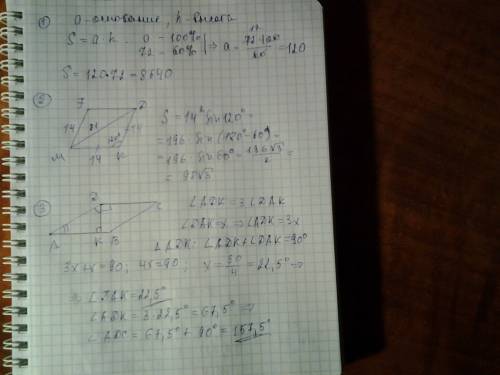 ① a - основание, h - высота
S = a·h   a - 100%
72 - 60% | ⇒ a = 72·100/60 = 120
S = 120·72 = 8640
② S = 14² sin 120° =
= 196 · sin(180° - 60°) =
= 196 sin 60° = 196√3/2 =
= 98√3
14 14 14 M K
③ ∠ADK = 3∠DAK
∠DAK = x ⇒ ∠ADK = 3x
△ADK: ∠ADK + ∠DAK = 90°
A K B
3x + x = 90; 4x = 90; x = 90/4 = 22,5° ⇒
⇒ ∠DAK = 22,5°
∠ADK = 3·22,5° = 67,5° ⇒
∠ADC = 67,5° + 90° = 157,5°